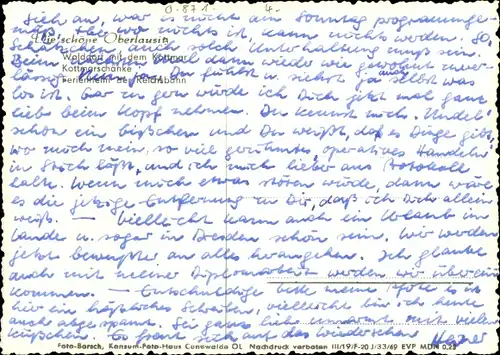 0-871
4.
Sieh an, war es nicht am Sonntag programmge-
Die schöne Oberlausitz
wo nichts ist, kann nichts werden. So,
auch solch Unterhaltung muß sein.
Walddorf mit dem Kottmar
dann wieder wie gewohnt
Kottmarschänke
Du fühlst u. siehst ja auch selbst was
Ferienheim der Reichsbahn
los ist. Gar zu gern würde ich Dich jetzt mal ganz
lieb beim Kopf nehmen. Du kennst mich.
schon ein bißchen und Du weißt, daß es Dinge gibt
wo mich mein so viel gerühmtes operatives Handeln
in Stich läßt, und ich mich lieber ans Protokoll
halte. Wenn mich etwas stören würde, dann wäre
es die jetzige Entfernung zu Dir, daß ich Dich allein
weiß. — Vielleicht kann auch ein Urlaub im
Lande u. sogar in Dresden schön sein. Wir werden
jetzt bewußter an alles herangehen. Ich glaube
auch mit meiner Diplomarbeit werden wir überein
kommen. — Entschuldige bitte meine es ist
hier ein häßliches Schreiben, vielleicht bin ich heute
auch abgespannt. Sei ganz lieb umarmt mit vielen
Küßchen. Es freut sich auf das Wiedersehen
Foto-Borsch, Konsum-Foto-Haus Cunewalde OL Nachdruck verboten III/19/F-20 J/33/69 EVP MDN 0,25